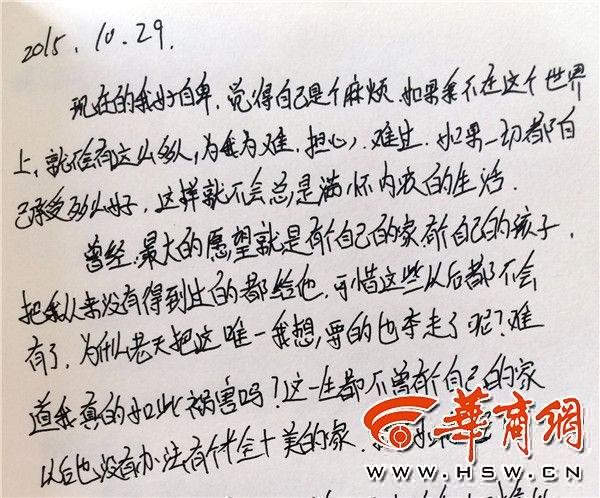 2015.10.29.
现在的我好自卑，觉得自己是个麻烦，如果我不在这个世界
上，就不会有这么多人，为我为难，担心，难过．如果一切都自
己承受多么好，这样就不会总是满怀内疚的生活．
曾经，最大的愿望就是有个自己的家有个自己的孩子，
把我从来没有得到过的都给他，可惜这些以后都不会
有了，为什么老天把这唯一我想，要的也夺走了呢？难
道我真的如此祸害吗？这一生都不曾有个自己的家
以后也没有办法有个十全十美的家，
華商網
WWW.HSW.CN